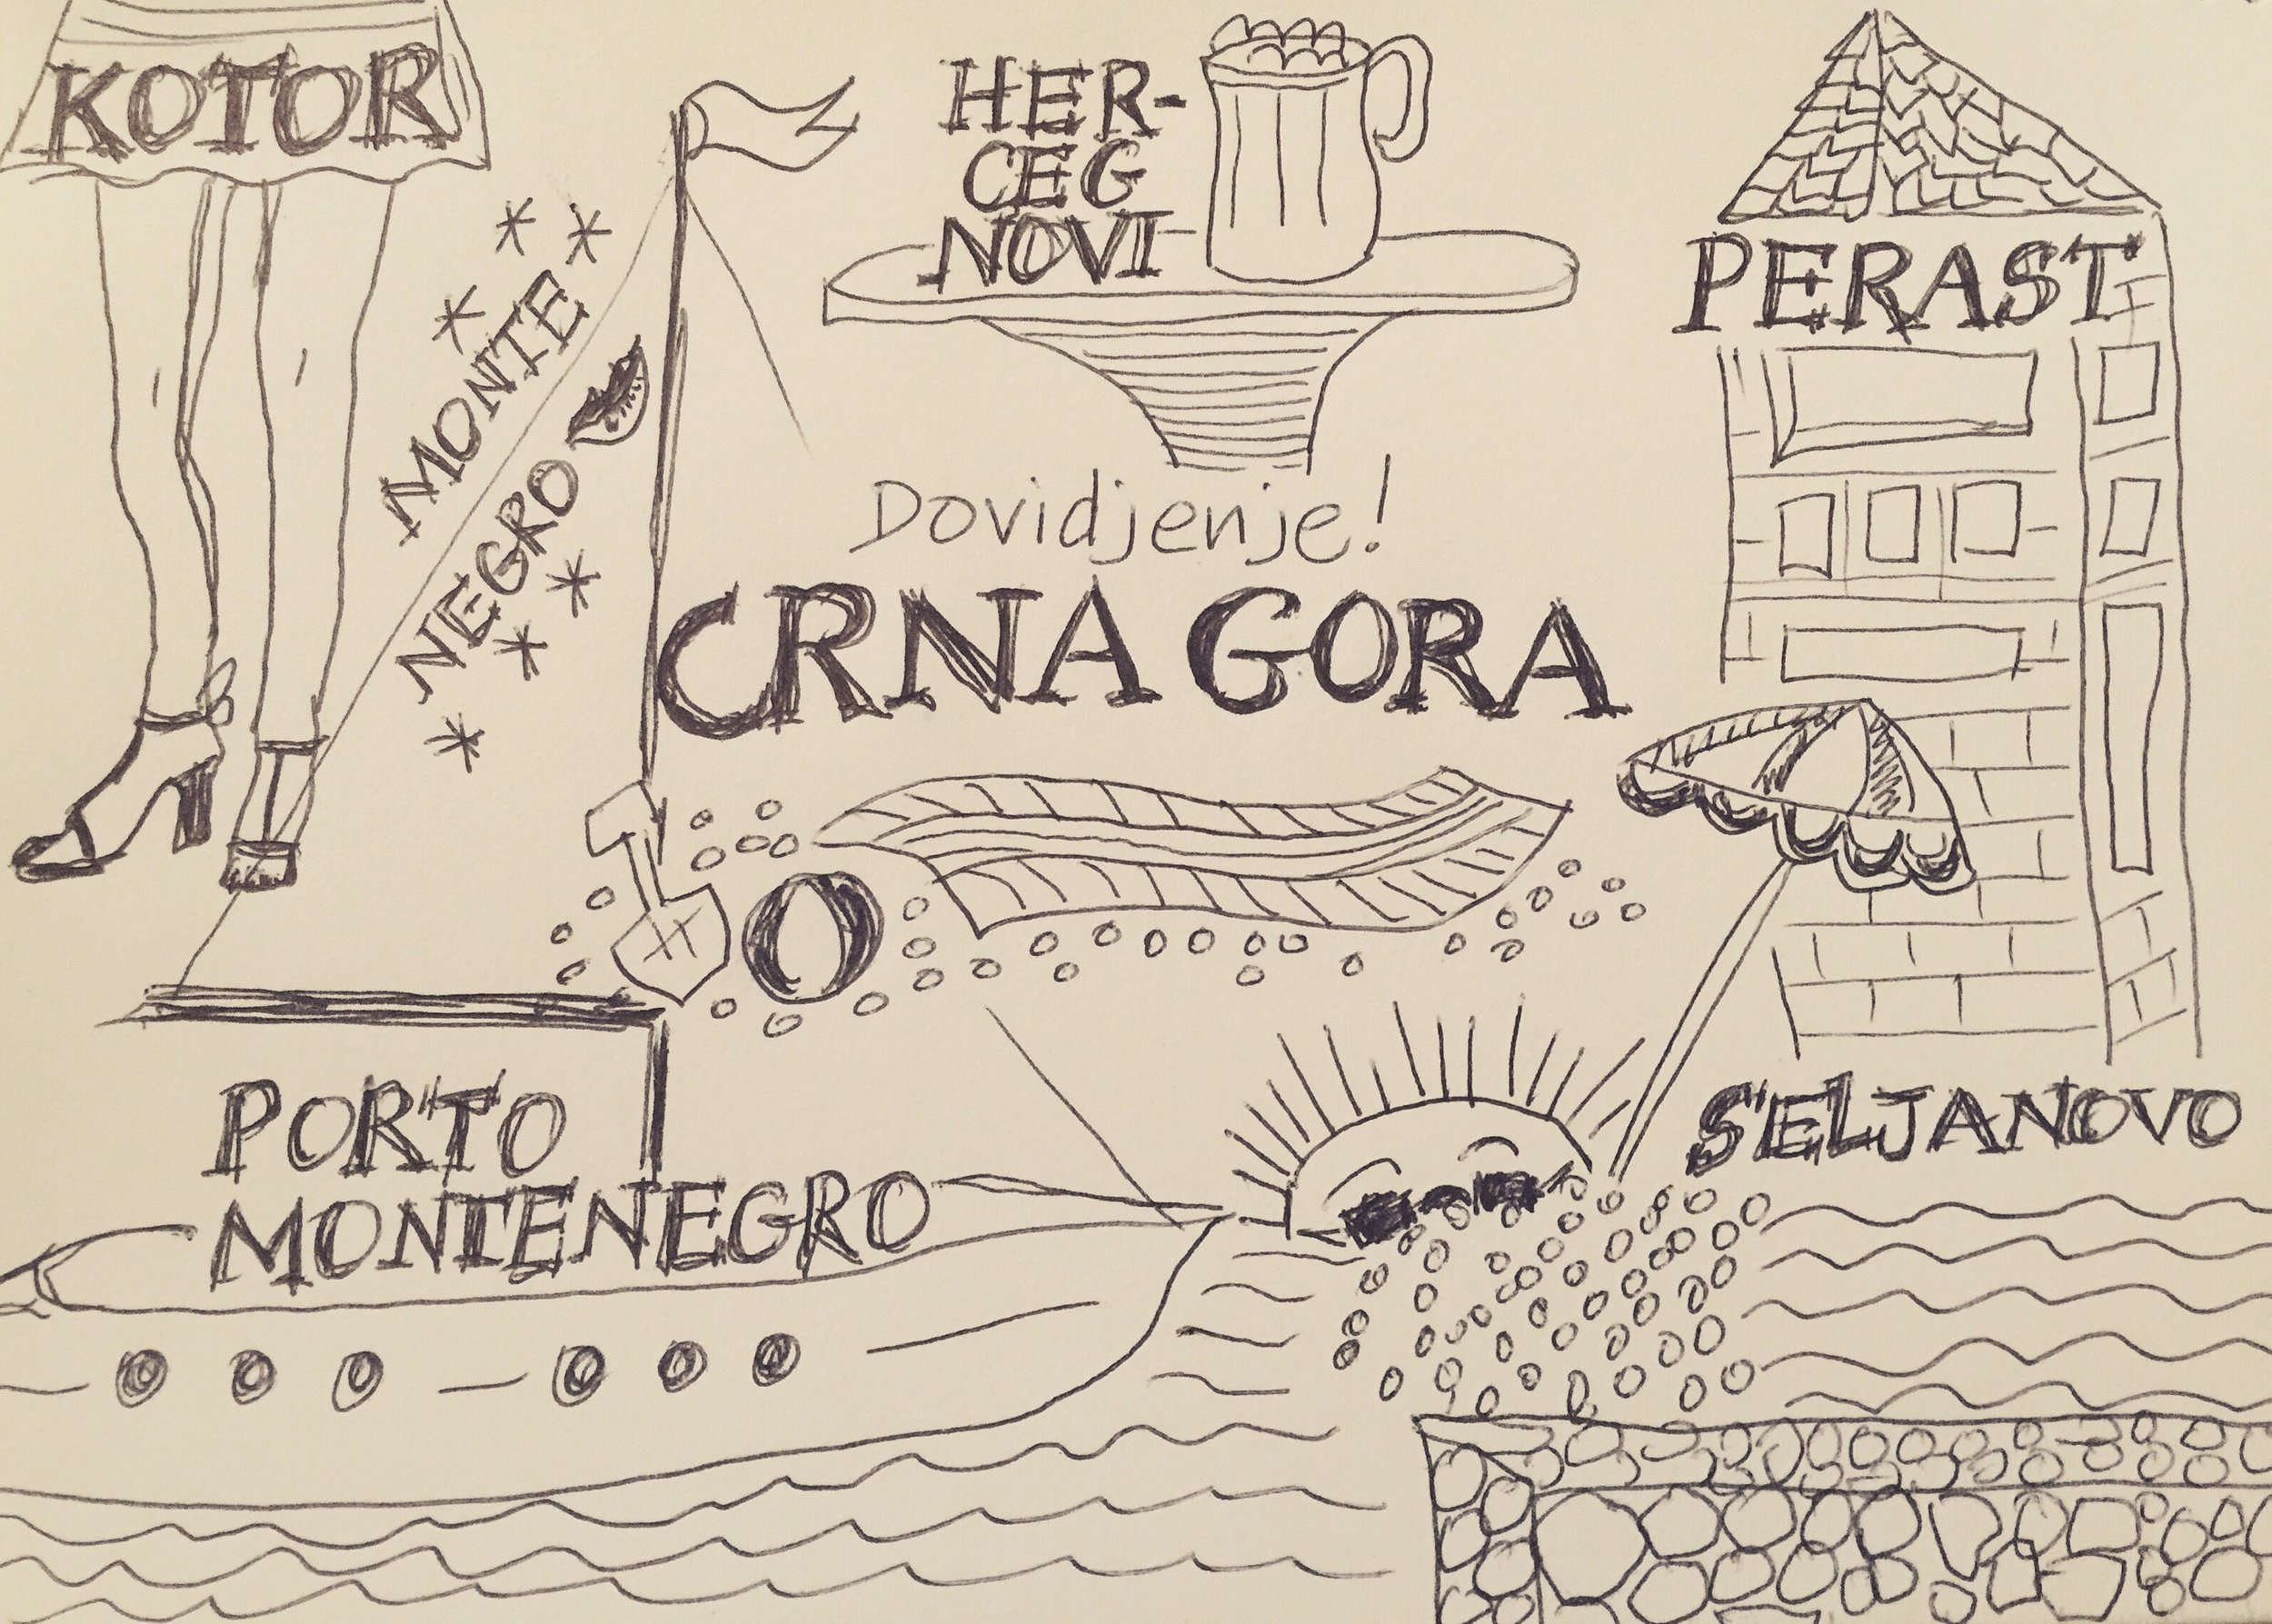 KOTOR
HER-
CEG
NOVI
PERAST
MONTE
NEGRO
Dovidjenje!
CRNA GORA
PORTO
MONTENEGRO
SELJANOVO